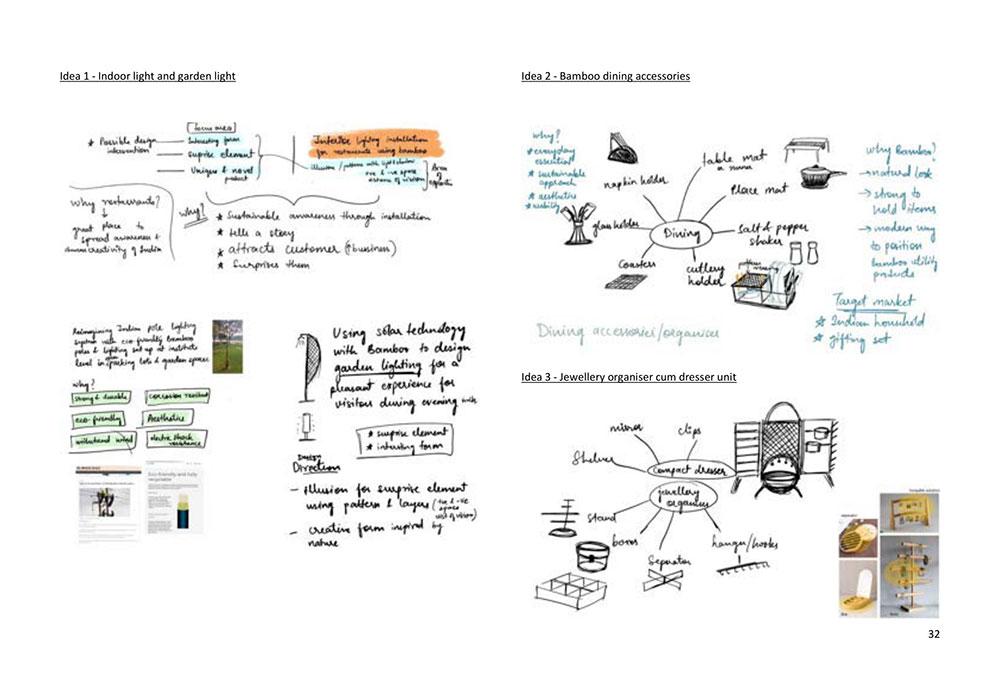 Idea 1 - Indoor light and garden light
[focus area]
* Possible design
intervention
Interesting form
surprise element
Unique & novel
product
lighting installation
for restaurants using bamboo
illusion / patterns with light & shadow
+ve & -ve space
distance of vision
Area
of
why restaurants?
great place to
spread awareness &
creativity of India
why?
* Sustainable awareness through installation
* tells a story
* attracts customer (business)
* Surprises them
Reimagining Indian pole lighting
system with eco-friendly Bamboo
poles & lighting set up at institute
level in parking lots & garden spaces
why?
strong & durable
corrosion resistant
eco-friendly
Aesthetic
withstand wind
electric shock
resistance
Eco-friendly and fully
recyclable
Using solar technology
with Bamboo to design
garden lighting for a
pleasant experience for
visitors during evening
* surprise element
* interesting form
Design
Direction
- illusion for surprise element
using pattern & layers (+ve & -ve
space
dist of vision)
- creative form inspired by
nature
Idea 2 - Bamboo dining accessories
why?
* everyday
essential
* sustainable
approach
* aesthetics
* usability
napkin holder
table mat
& runner
place mat
glass holder
Dining
Salt & pepper
shaker
Coasters
cutlery
holder
why Bamboo?
→ natural look
→ strong to
hold items
→ modern way
to position
bamboo utility
products
Target market
* Indian household
* gifting set
Dining accessories/organiser
Idea 3 - Jewellery organiser cum dresser unit
mirror
clips
Shelves
compact dresser
jewellery
organiser
Stand
boxes
Separator
hanger/hooks
32